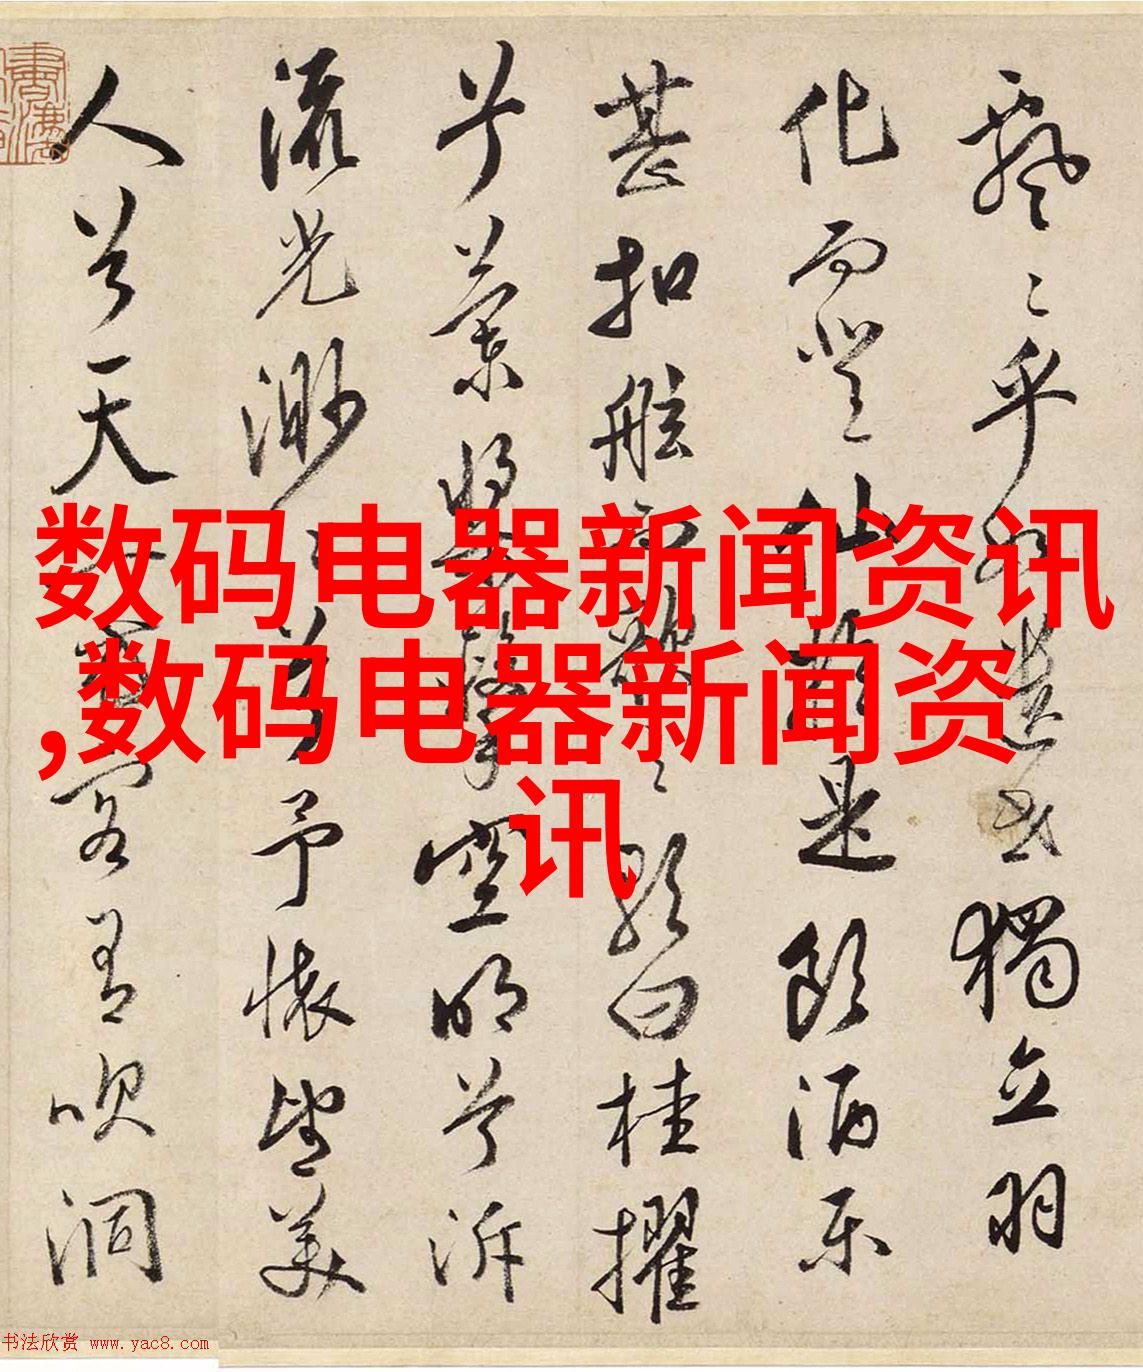 飄〻乎如遺世獨立羽
化而登仙於是飲酒樂
甚扣舷而歌之歌曰桂擢
兮蘭槳擊空明兮泝
流光渺〻兮予懷望美
人兮天一方客有吹洞
数码电器新闻资讯
,数码电器新闻资
讯
书法欣赏 www.yac8.com